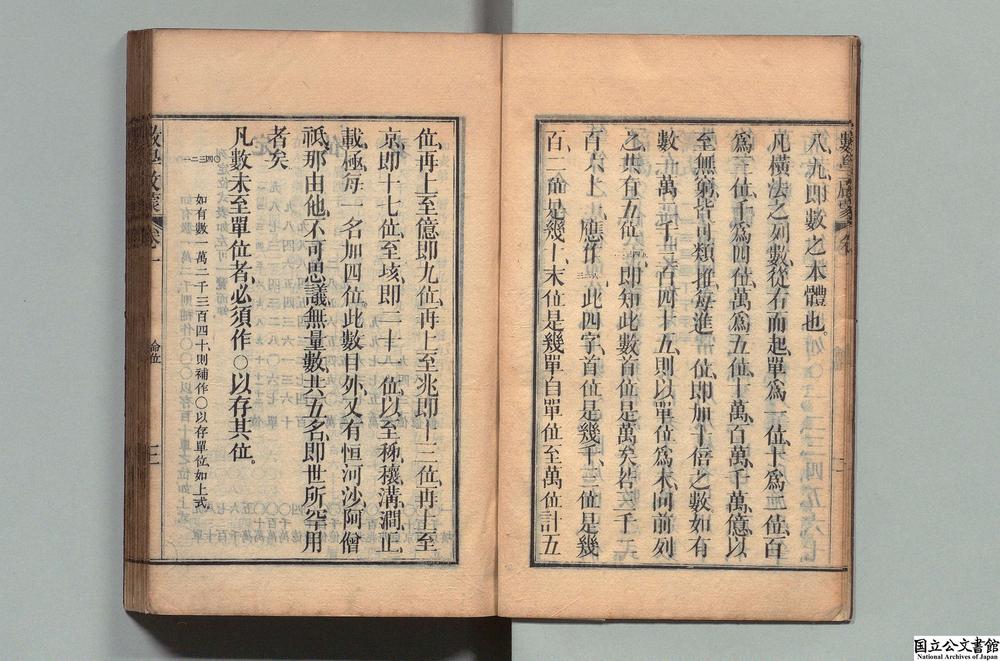 八九、即數之本體也。
凡橫法之列數、從右而起、單爲一位、十爲二位、百
爲三位、千爲四位、萬爲五位、十萬、百萬、千萬、億、以
至無窮、皆可類推、每進一位、即加十倍之數、如有
數一萬二千三百四十五、則以單位爲末、向前列
之、共有五位、即知此數首位是萬矣、
百二命是幾十、末位是幾單、自單位至萬位、計五
位、再上至億、即九位、再上至兆、即十三位、再上至
京、即十七位、至垓、即二十一位、以至秭、穰、溝、澗、正、
載、極、每一名加四位、此數目外、又有恒河沙、阿僧
祇、那由他、不可思議、無量數、共五名、即世所罕用
者矣、
凡數未至單位者、必須作〇以存其位。
如有數一萬二千三百四十、則補作〇以存單位如上式
一二三四〇
數學啟蒙 卷一
論位
三
數學啟蒙
国立公文書館
National Archives of Japan